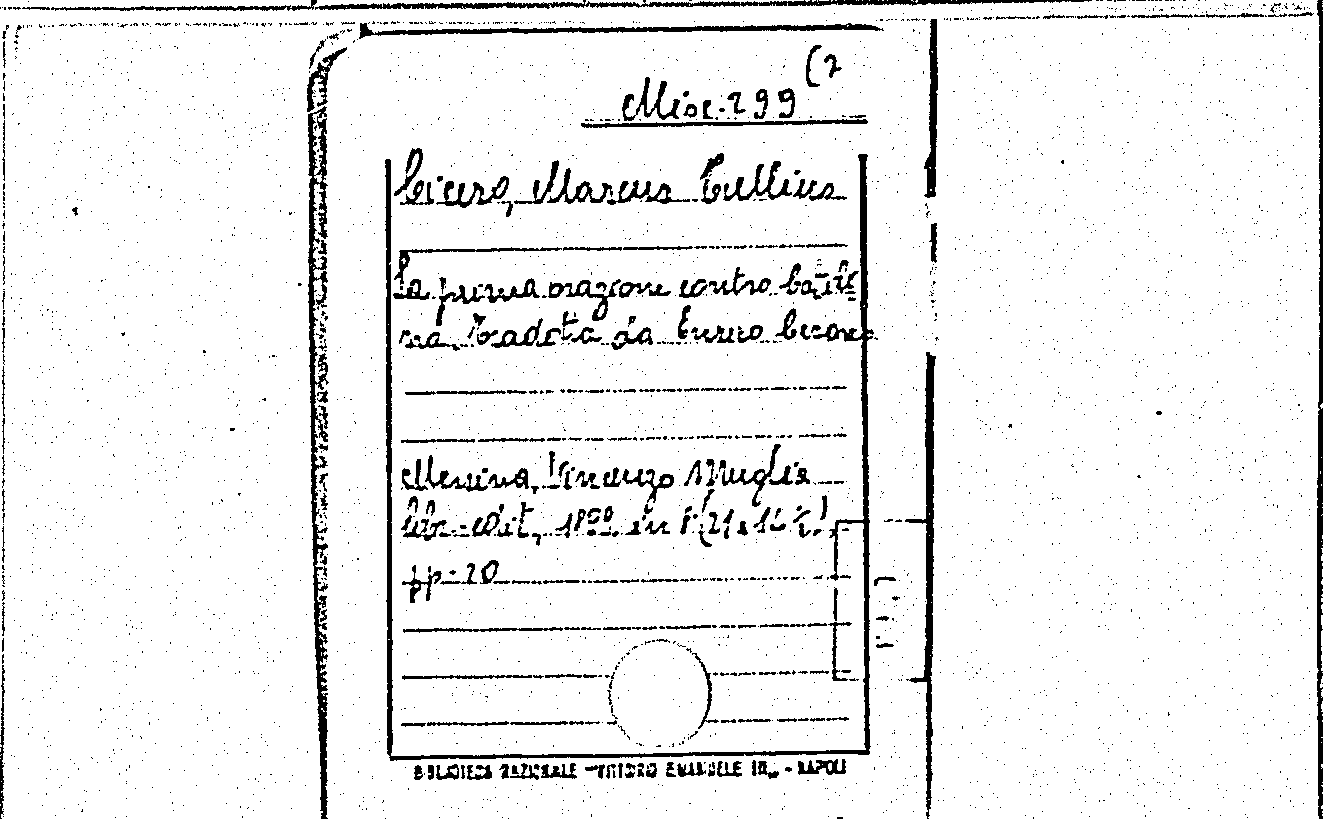 Misc. 299 (2
Cicero, Marcus Tullius
La prima orazione contro Catili=
na. Tradotta da Enrico
Messina, Vincenzo Muglia
libr.-edit., in 8° (21 x
pp. 20
BIBLIOTECA NAZIONALE "VITTORIO EMANUELE III„ - NAPOLI